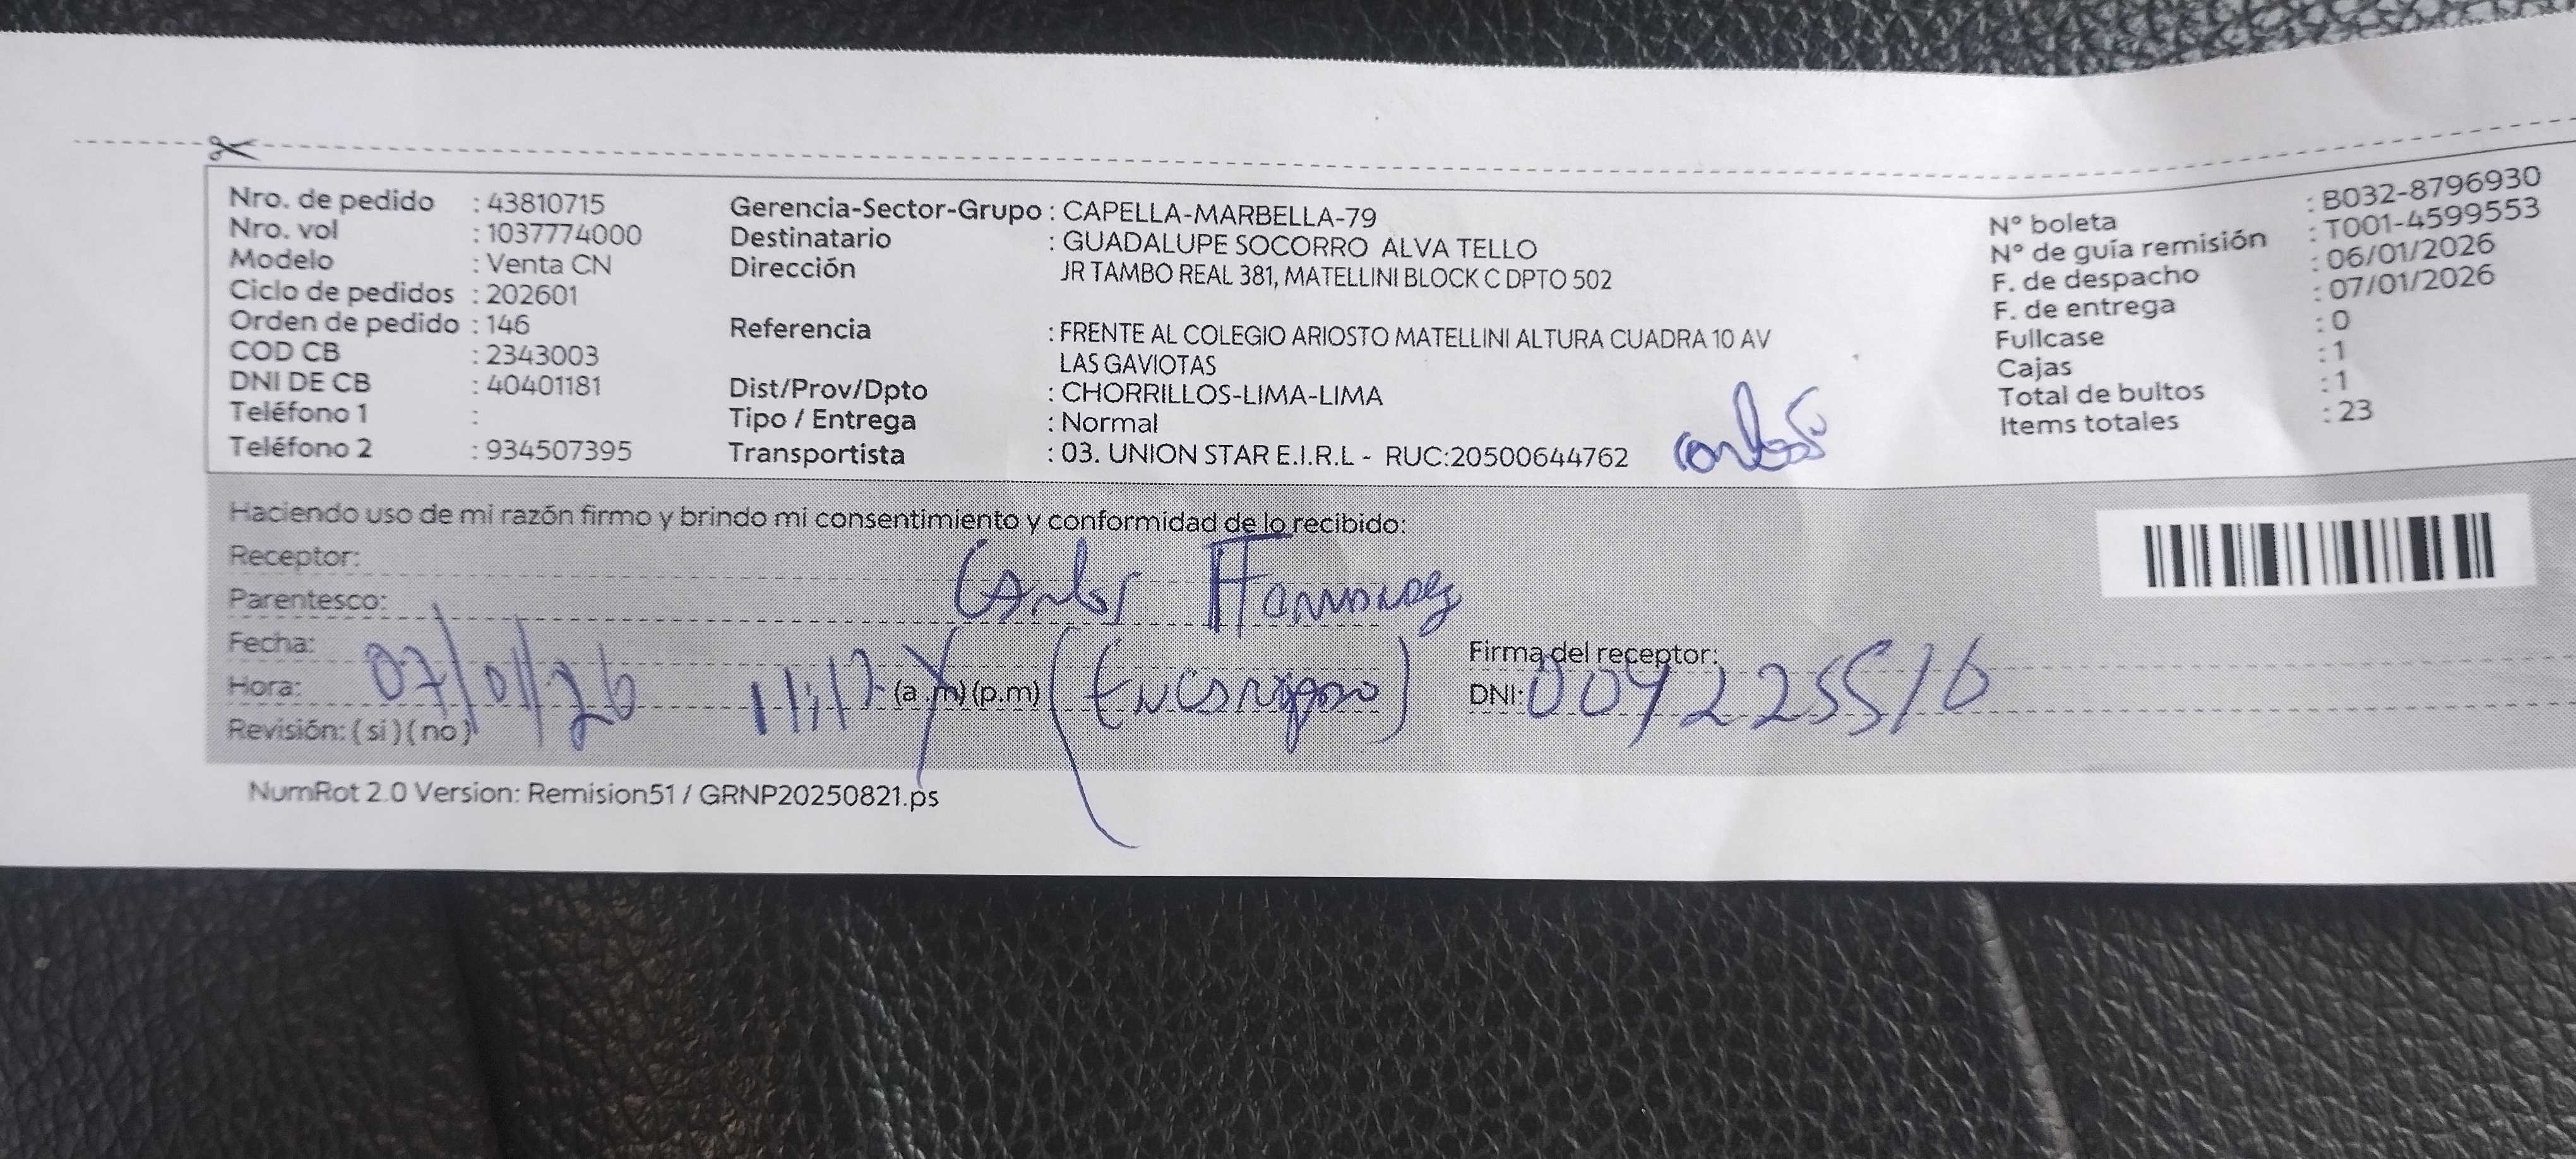 Nro. de pedido : 43810715
Nro. vol : 1037774000
Modelo : Venta CN
Ciclo de pedidos : 202601
Orden de pedido : 146
COD CB : 2343003
DNI DE CB : 40401181
Teléfono 1 :
Teléfono 2 : 934507395
Gerencia-Sector-Grupo : CAPELLA-MARBELLA-79
Destinatario : GUADALUPE SOCORRO ALVA TELLO
Dirección JR TAMBO REAL 381, MATELLINI BLOCK C DPTO 502
Referencia : FRENTE AL COLEGIO ARIOSTO MATELLINI ALTURA CUADRA 10 AV
LAS GAVIOTAS
Dist/Prov/Dpto : CHORRILLOS-LIMA-LIMA
Tipo / Entrega : Normal
Transportista : 03. UNION STAR E.I.R.L - RUC:20500644762
N° boleta : B032-8796930
N° de guía remisión : T001-4599553
F. de despacho : 06/01/2026
F. de entrega : 07/01/2026
Fullcase : 0
Cajas : 1
Total de bultos : 1
Items totales : 23
Haciendo uso de mi razón firmo y brindo mi consentimiento y conformidad de lo recibido:
Receptor: Carlos
Parentesco:
Fecha: 07/01/26
Hora: 11:17 (a.m) (p.m)
Firma del receptor:
DNI: 004225516
Revisión: (si) (no)
NumRot 2.0 Version: Remision51 / GRNP20250821.ps